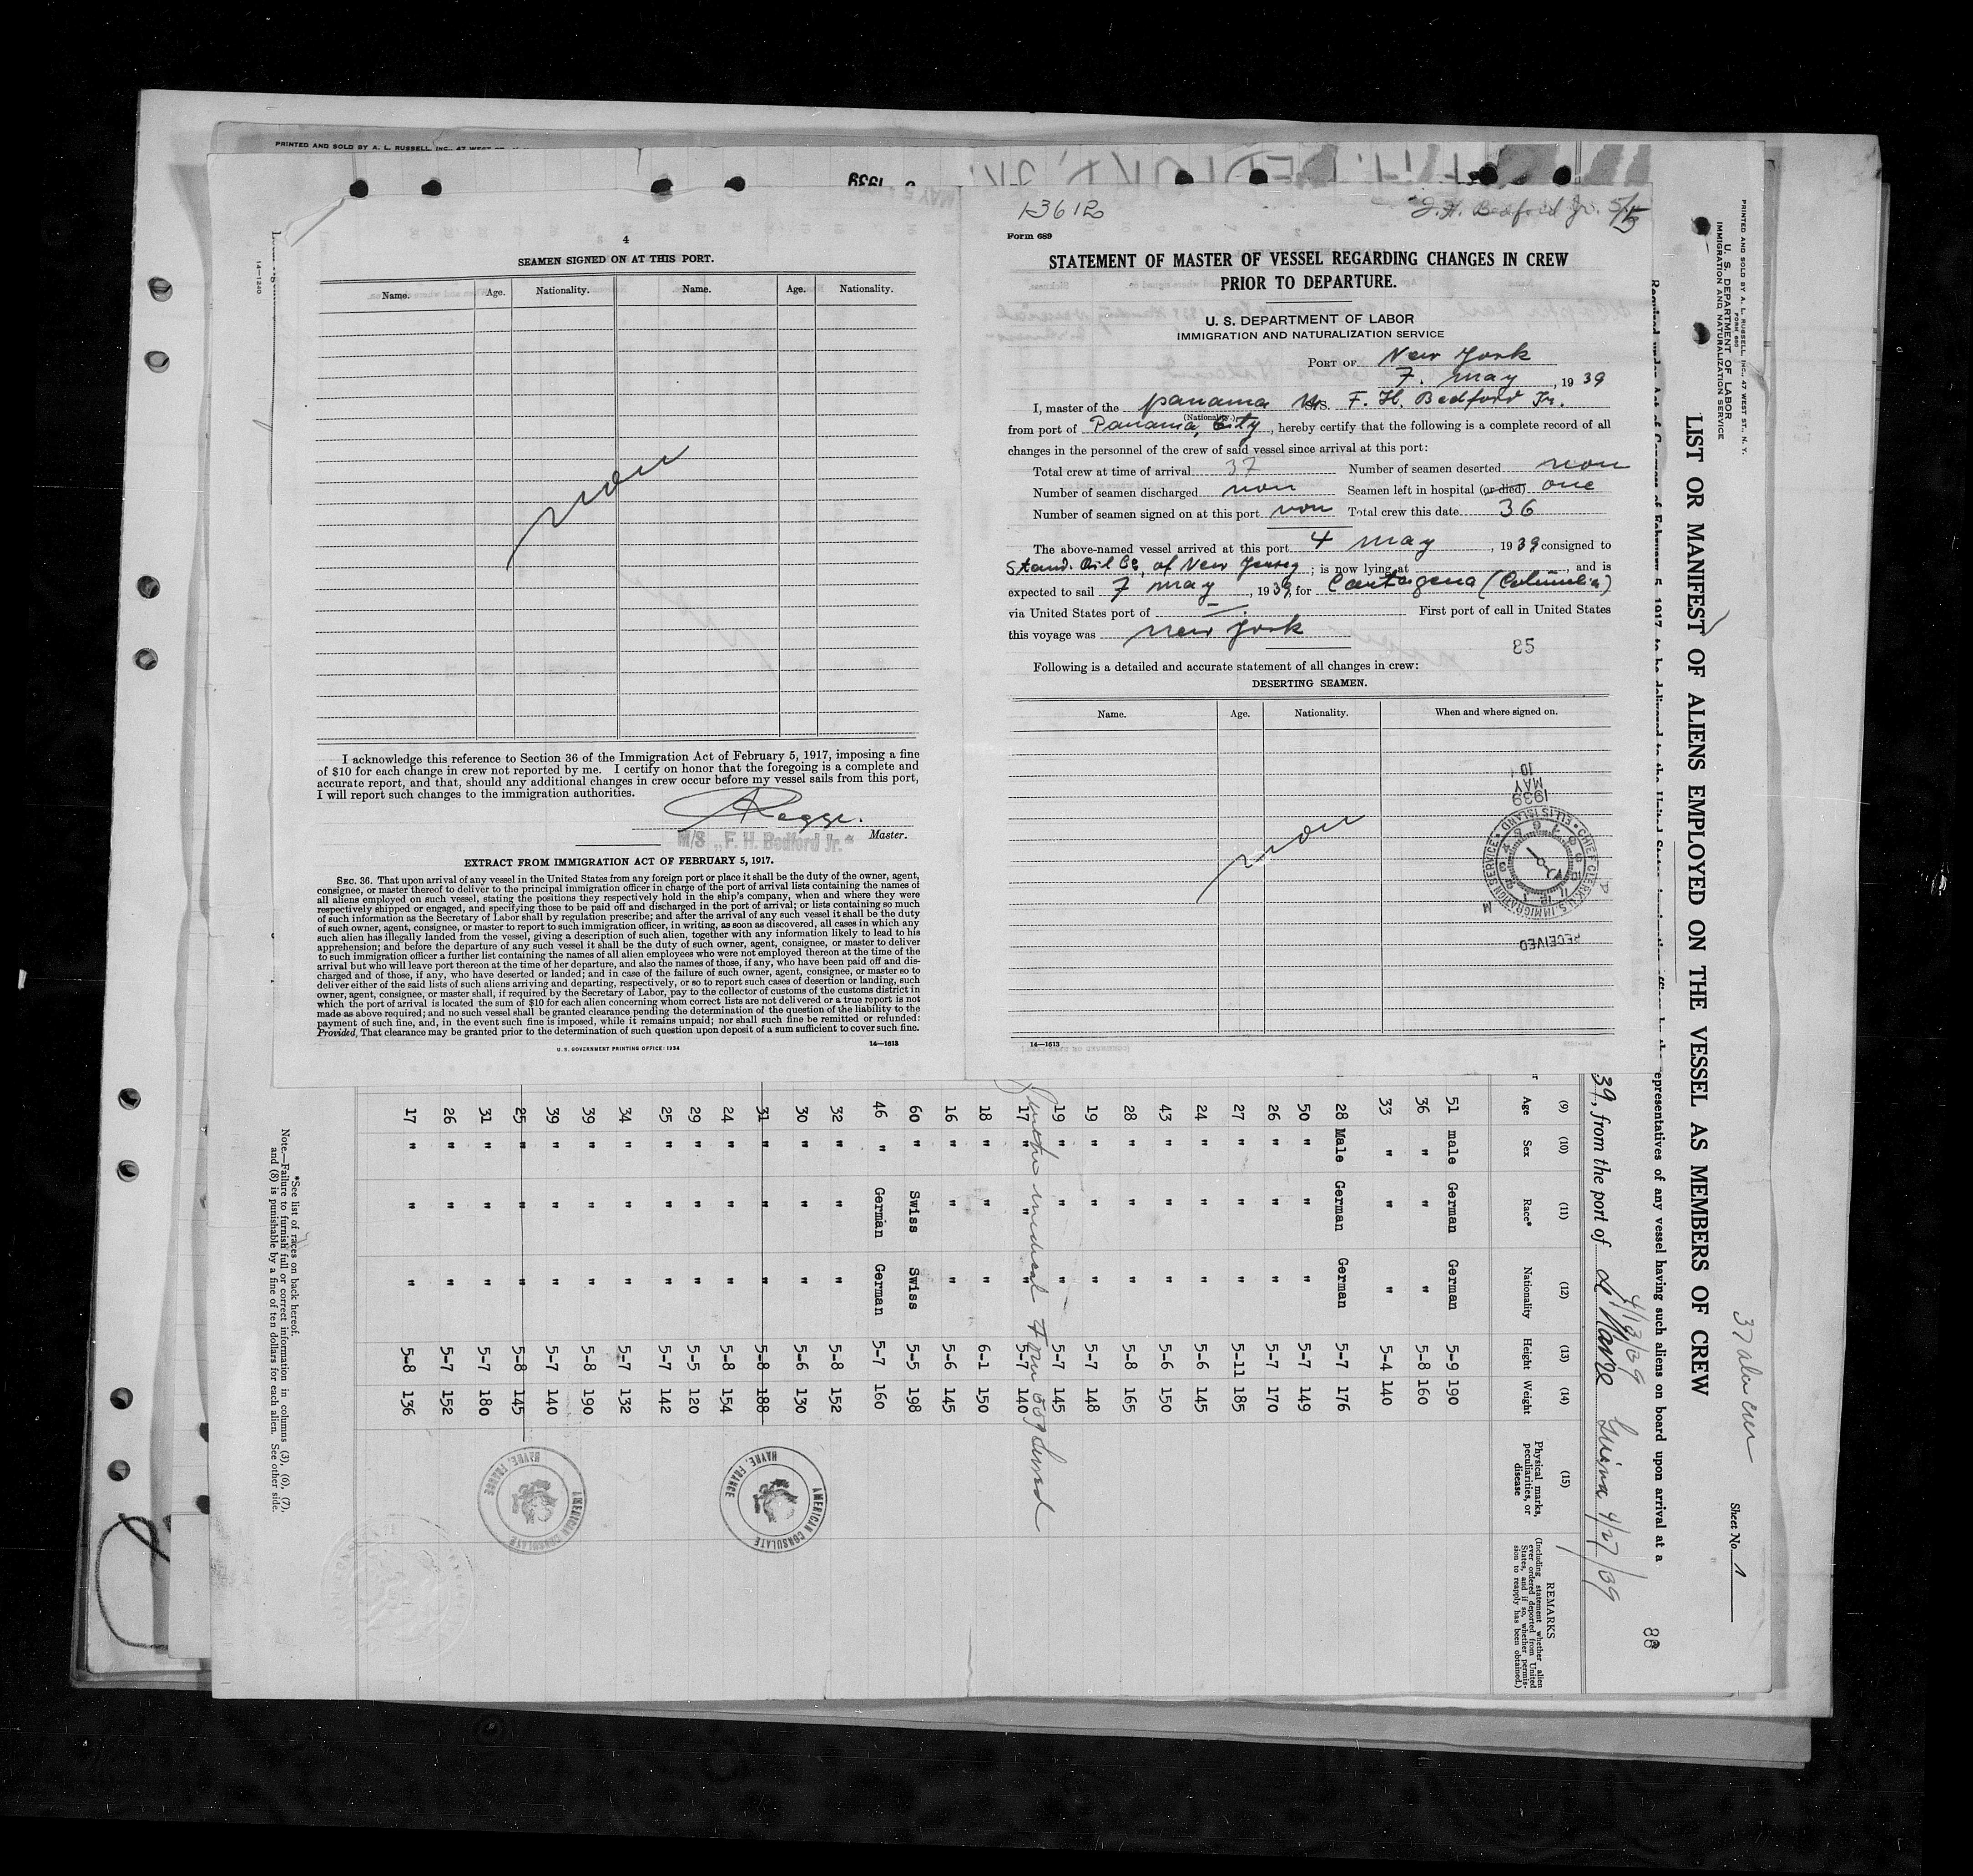 PRINTED AND SOLD BY A. L. RUSSELL, INC., 47 WEST
1939
14—1240
4
SEAMEN SIGNED ON AT THIS PORT.
Name. Age. Nationality. Name. Age. Nationality.
non
I acknowledge this reference to Section 36 of the Immigration Act of February 5, 1917, imposing a fine
of $10 for each change in crew not reported by me. I certify on honor that the foregoing is a complete and
accurate report, and that, should any additional changes in crew occur before my vessel sails from this port,
I will report such changes to the immigration authorities.
Master.
M/S „F. H. Bedford Jr."
EXTRACT FROM IMMIGRATION ACT OF FEBRUARY 5, 1917.
SEC. 36. That upon arrival of any vessel in the United States from any foreign port or place it shall be the duty of the owner, agent,
consignee, or master thereof to deliver to the principal immigration officer in charge of the port of arrival lists containing the names of
all aliens employed on such vessel, stating the positions they respectively hold in the ship's company, when and where they were
respectively shipped or engaged, and specifying those to be paid off and discharged in the port of arrival; or lists containing so much
of such information as the Secretary of Labor shall by regulation prescribe; and after the arrival of any such vessel it shall be the duty
of such owner, agent, consignee, or master to report to such immigration officer, in writing, as soon as discovered, all cases in which any
such alien has illegally landed from the vessel, giving a description of such alien, together with any information likely to lead to his
apprehension; and before the departure of any such vessel it shall be the duty of such owner, agent, consignee, or master to deliver
to such immigration officer a further list containing the names of all alien employees who were not employed thereon at the time of the
arrival but who will leave port thereon at the time of her departure, and also the names of those, if any, who have been paid off and dis-
charged and of those, if any, who have deserted or landed; and in case of the failure of such owner, agent, consignee, or master so to
deliver either of the said lists of such aliens arriving and departing, respectively, or so to report such cases of desertion or landing, such
owner, agent, consignee, or master shall, if required by the Secretary of Labor, pay to the collector of customs of the customs district in
which the port of arrival is located the sum of $10 for each alien concerning whom correct lists are not delivered or a true report is not
made as above required; and no such vessel shall be granted clearance pending the determination of the question of the liability to the
payment of such fine, and, in the event such fine is imposed, while it remains unpaid; nor shall such fine be remitted or refunded:
Provided, That clearance may be granted prior to the determination of such question upon deposit of a sum sufficient to cover such fine.
U. S. GOVERNMENT PRINTING OFFICE: 1934
14—1613
13612
F. H. Bedford Jr. 5/5
Form 689
STATEMENT OF MASTER OF VESSEL REGARDING CHANGES IN CREW
PRIOR TO DEPARTURE.
U. S. DEPARTMENT OF LABOR
IMMIGRATION AND NATURALIZATION SERVICE
PORT OF New York
7. May, 1939
I, master of the panama Ms. F. H. Bedford Jr.
(Nationality.)
from port of Panama, City, hereby certify that the following is a complete record of all
changes in the personnel of the crew of said vessel since arrival at this port:
Total crew at time of arrival 37 Number of seamen deserted non
Number of seamen discharged non Seamen left in hospital (or died) one
Number of seamen signed on at this port non Total crew this date 36
The above-named vessel arrived at this port 4 May, 1939 consigned to
Stand. Oil Co, of New Jersey; is now lying at , and is
expected to sail 7 May, 1939, for Cartagena (Columbia)
via United States port of —. First port of call in United States
this voyage was New York
85
Following is a detailed and accurate statement of all changes in crew:
DESERTING SEAMEN.
Name. Age. Nationality. When and where signed on.
non
RECEIVED
CHIEF CLERK U.S. IMMIGRATION SERVICE • ELLIS ISLAND
1939
MAY
10
14—1613
PRINTED AND SOLD BY A. L. RUSSELL, INC., 47 WEST ST., N. Y.
FORM 680
U. S. DEPARTMENT OF LABOR
IMMIGRATION AND NATURALIZATION SERVICE
37 alien crew
Sheet No. 1
LIST OR MANIFEST OF ALIENS EMPLOYED ON THE VESSEL AS MEMBERS OF CREW
representatives of any vessel having such aliens on board upon arrival at a
88
4/19/39
39, from the port of Le Havre 4/27/39
(9) (10) (11) (12) (13) (14) (15)
Age Sex Race* Nationality Height Weight Physical marks, peculiarities, or disease
REMARKS
(Including statement whether alien
ever ordered deported from United
States, and if so, whether permis-
sion to reapply has been obtained.)
51 male German German 5-9 190
36 " " " 5-8 160
33 " " " 5-4 140
28 Male German German 5-7 176
50 " " " 5-7 149
26 " " " 5-7 170
27 " " " 5-11 185
24 " " " 5-6 145
43 " " " 5-6 150
28 " " " 5-8 165
19 " " " 5-7 148
19 " " " 5-7 145
17 " " " 5-7 140
18 " " " 6-1 150
16 " " " 5-6 145
60 " Swiss Swiss 5-5 198
46 " German German 5-7 160
32 " " " 5-8 152
30 " " " 5-6 130
31 " " " 5-8 188
24 " " " 5-8 154
29 " " " 5-5 120
25 " " " 5-7 142
34 " " " 5-7 132
39 " " " 5-8 190
39 " " " 5-7 140
25 " " " 5-8 145
31 " " " 5-7 180
26 " " " 5-7 152
17 " " " 5-8 136
AMERICAN CONSULATE
HAVRE, FRANCE
AMERICAN CONSULATE
HAVRE, FRANCE
*See list of races on back hereof.
Note.—Failure to furnish full or correct information in columns (3), (6), (7),
and (8) is punishable by a fine of ten dollars for each alien. See other side.